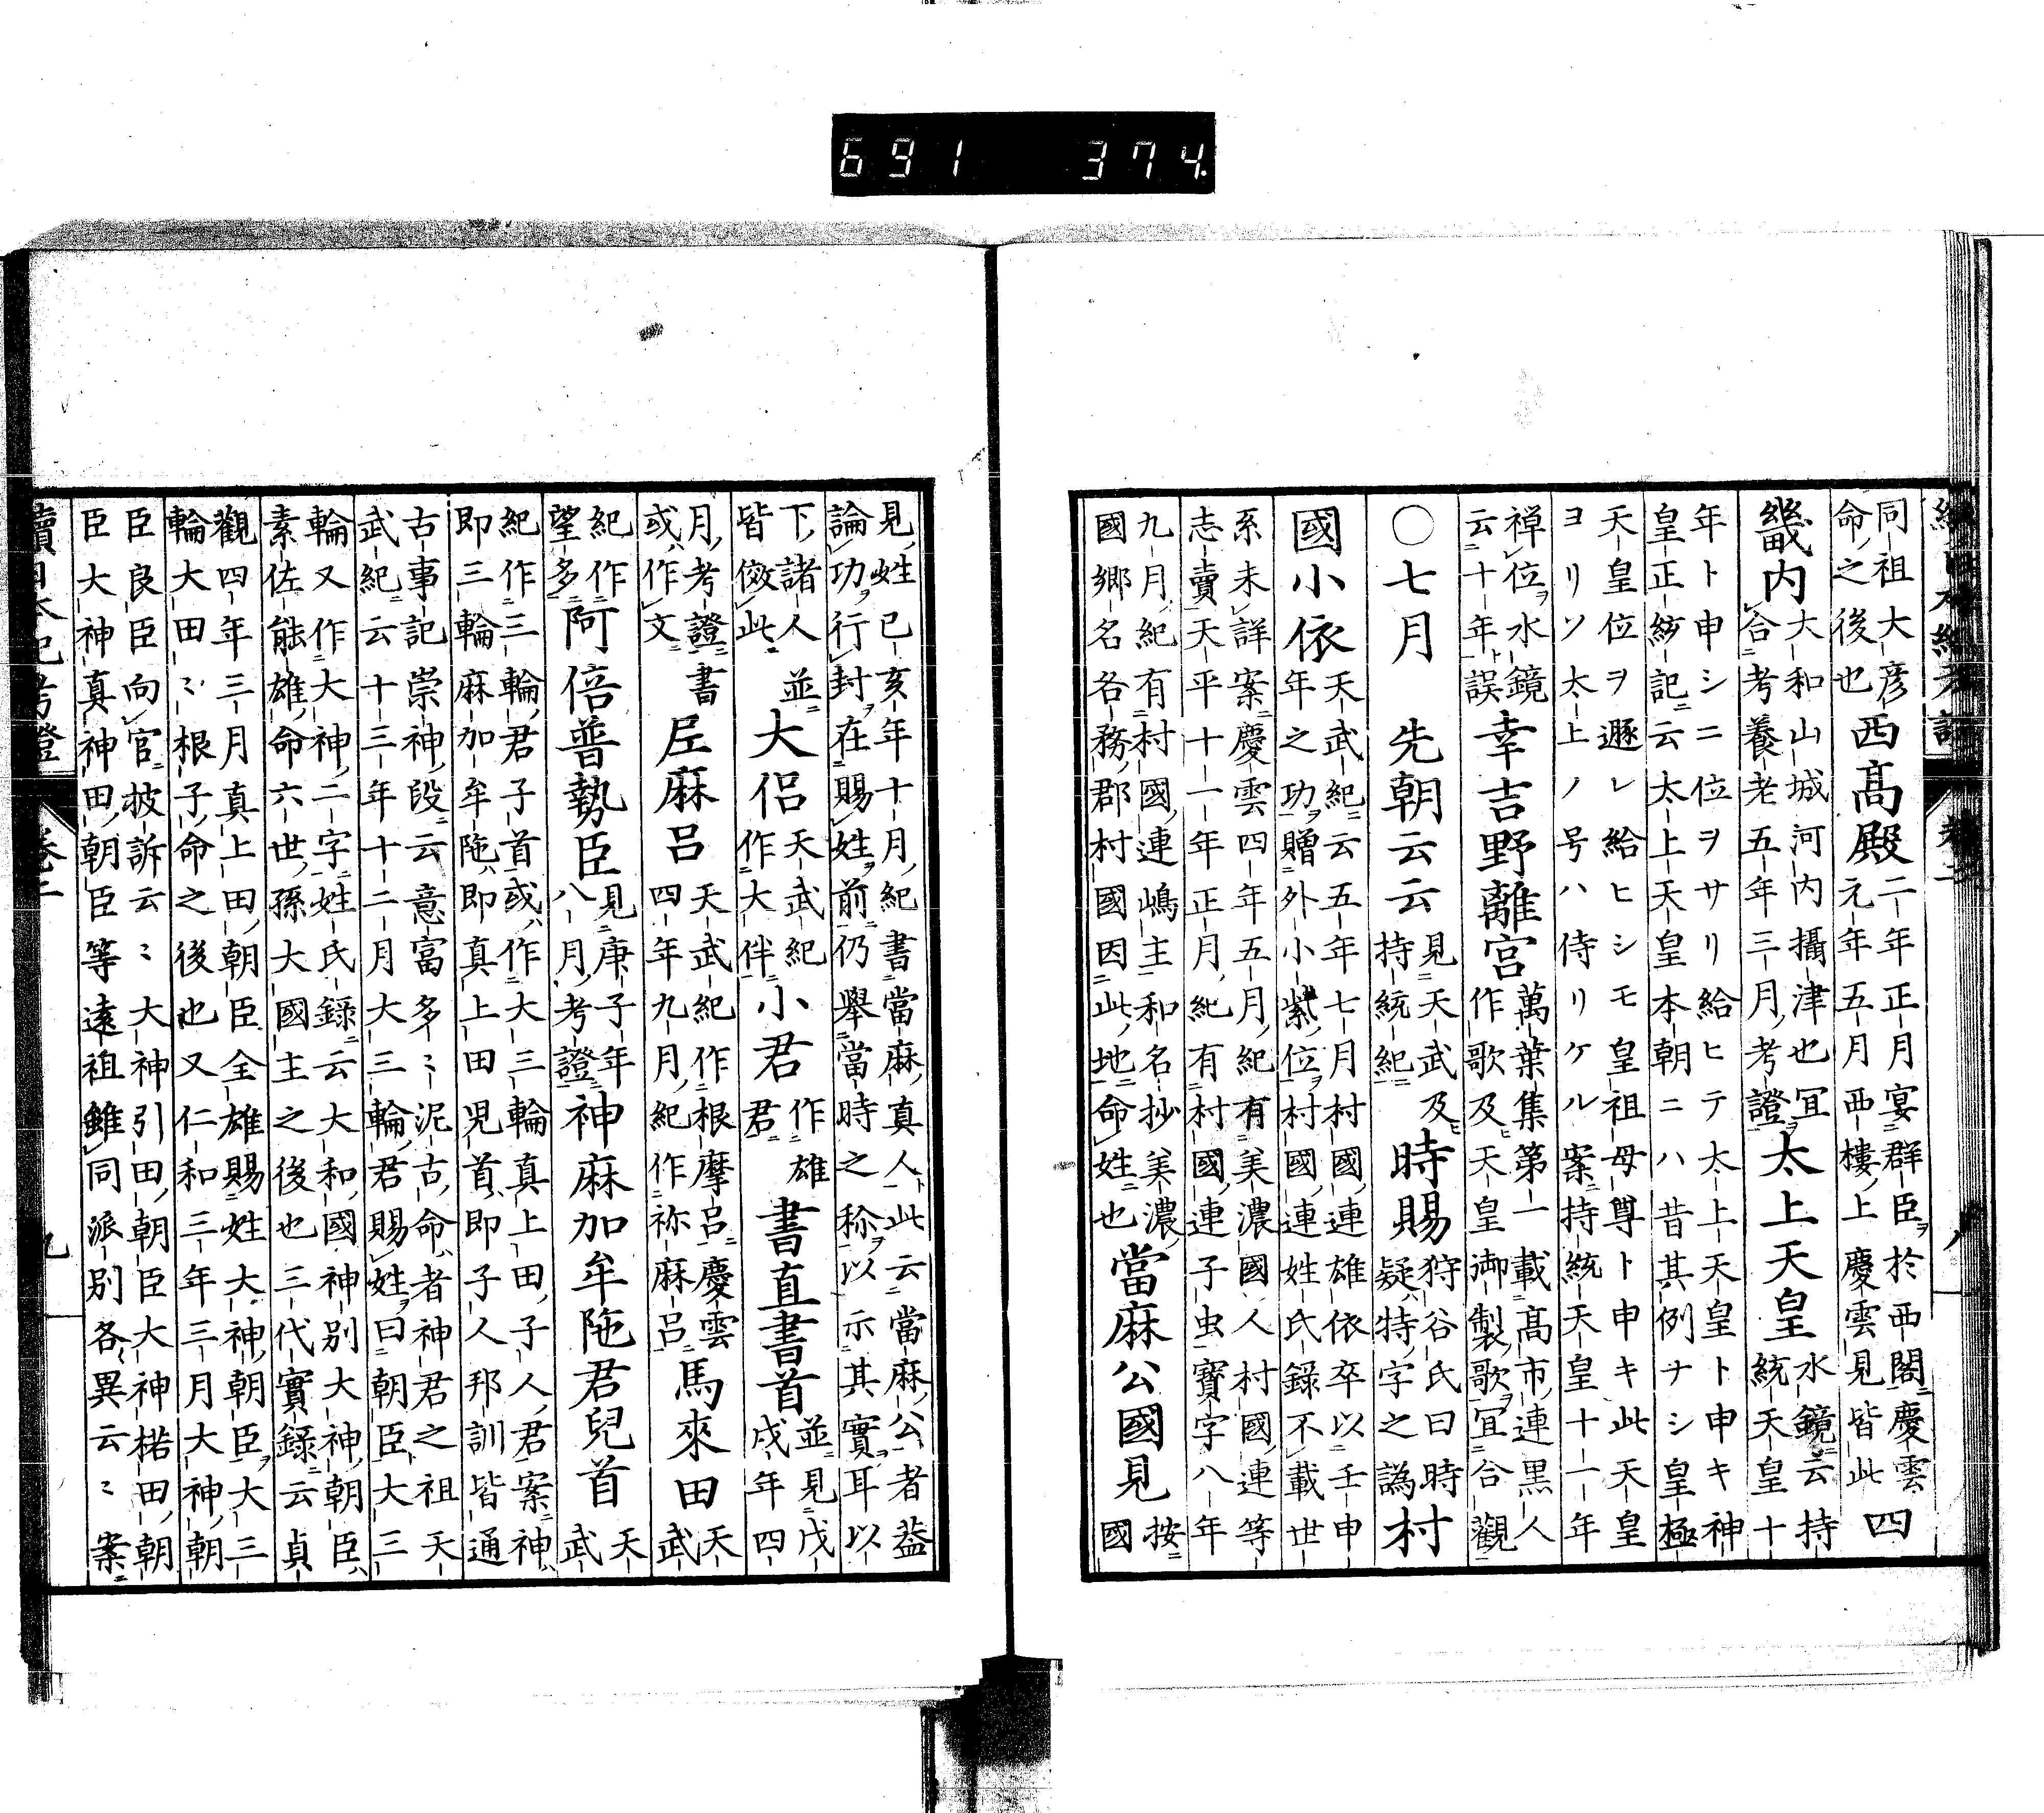 續日本紀考證 卷二 八
同祖大彦
命之後也
西高殿
二年正月宴群臣ヲ於西閣慶雲
元年五月西樓上慶雲見皆此
四
畿内
大和山城河内攝津也宜
合考養老五年三月考證
太上天皇
水鏡云持
統天皇十
年ト申シニ位ヲサリ給ヒテ太上天皇ト申キ神
皇正統記云太上天皇本朝ニハ昔其例ナシ皇極
天皇位ヲ遜レ給ヒシモ皇祖母尊ト申キ此天皇
ヨリソ太上ノ号ハ侍リケル案持統天皇十一年
禅位水鏡
云十年誤
幸吉野離宮
萬葉集第一載高市連黒人
作歌及天皇御製歌宜合觀
〇七月 先朝云云
見天武及
持統紀
時賜
狩谷氏曰時
疑特字之譌
村
國小依
天武紀云五年七月村國連雄依卒以壬申
年之功贈外小紫位村國連姓氏錄不載世
系未詳案慶雲四年五月紀有美濃國人村國連等
志賣天平十一年正月紀有村國連子虫寶字八年
九月紀有村國連嶋主和名抄美濃
國鄉名各務郡村國因此地命姓也
當麻公國見
按
國
見姓已亥年十月紀書當麻真人此云當麻公者蓋
論功行封在賜姓前仍舉當時之称以示其實耳以
下諸人
皆倣此
並
大侶
天武紀
作大伴
小君
作雄
君
書直書首
並見戊
戌年四
月考證
或作文
書
尼麻呂
天武紀作根摩呂慶雲
四年九月紀作祢麻呂
馬來田
天
武
紀作
望多
阿倍普勢臣
見庚子年
八月考證
神麻加牟陁君兒首
天
武
紀作三輪君子首或作大三輪真上田子人君案神
即三輪麻加牟陁即真上田兒首即子人邦訓皆通
古事記崇神段云意富多〻泥古命者神君之祖天
武紀云十三年十二月大三輪君賜姓曰朝臣大三
輪又作大神二字姓氏錄云大和國神別大神朝臣
素佐能雄命六世孫大國主之後也三代實錄云貞
觀四年三月真上田朝臣全雄賜姓大神朝臣大三
輪大田〻根子命之後也又仁和三年三月大神朝
臣良臣向官披訴云〻大神引田朝臣大神楉田朝
臣大神真神田朝臣等遠祖雖同派別各異云〻案
續日本紀考證 卷二 九
691 374.